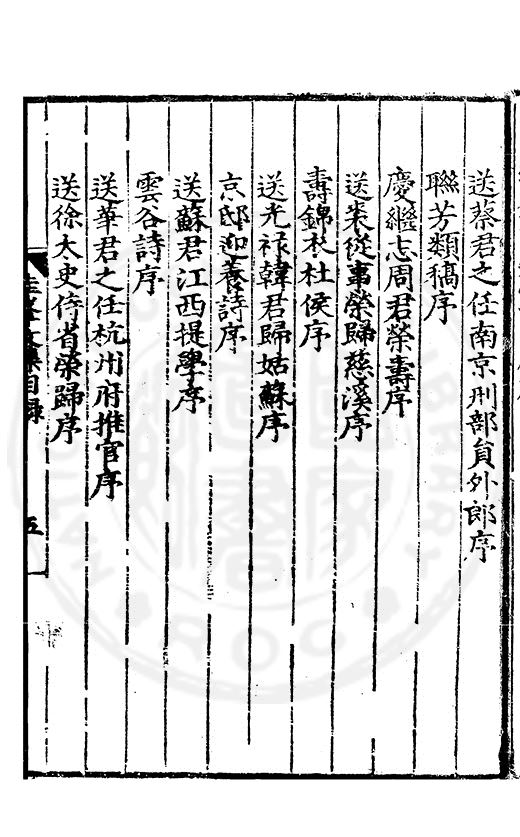 送蔡君之任南京刑部員外郎序
聯芳類稿序
慶繼志周君榮壽序
送裘從事榮歸慈溪序
壽錦衣杜侯序
送光祿韓君歸姑蘇序
京邸迎養詩序
送蘇君江西提學序
雲谷詩序
送華君之任杭州府推官序
送徐太史侍省榮歸序
目錄
五